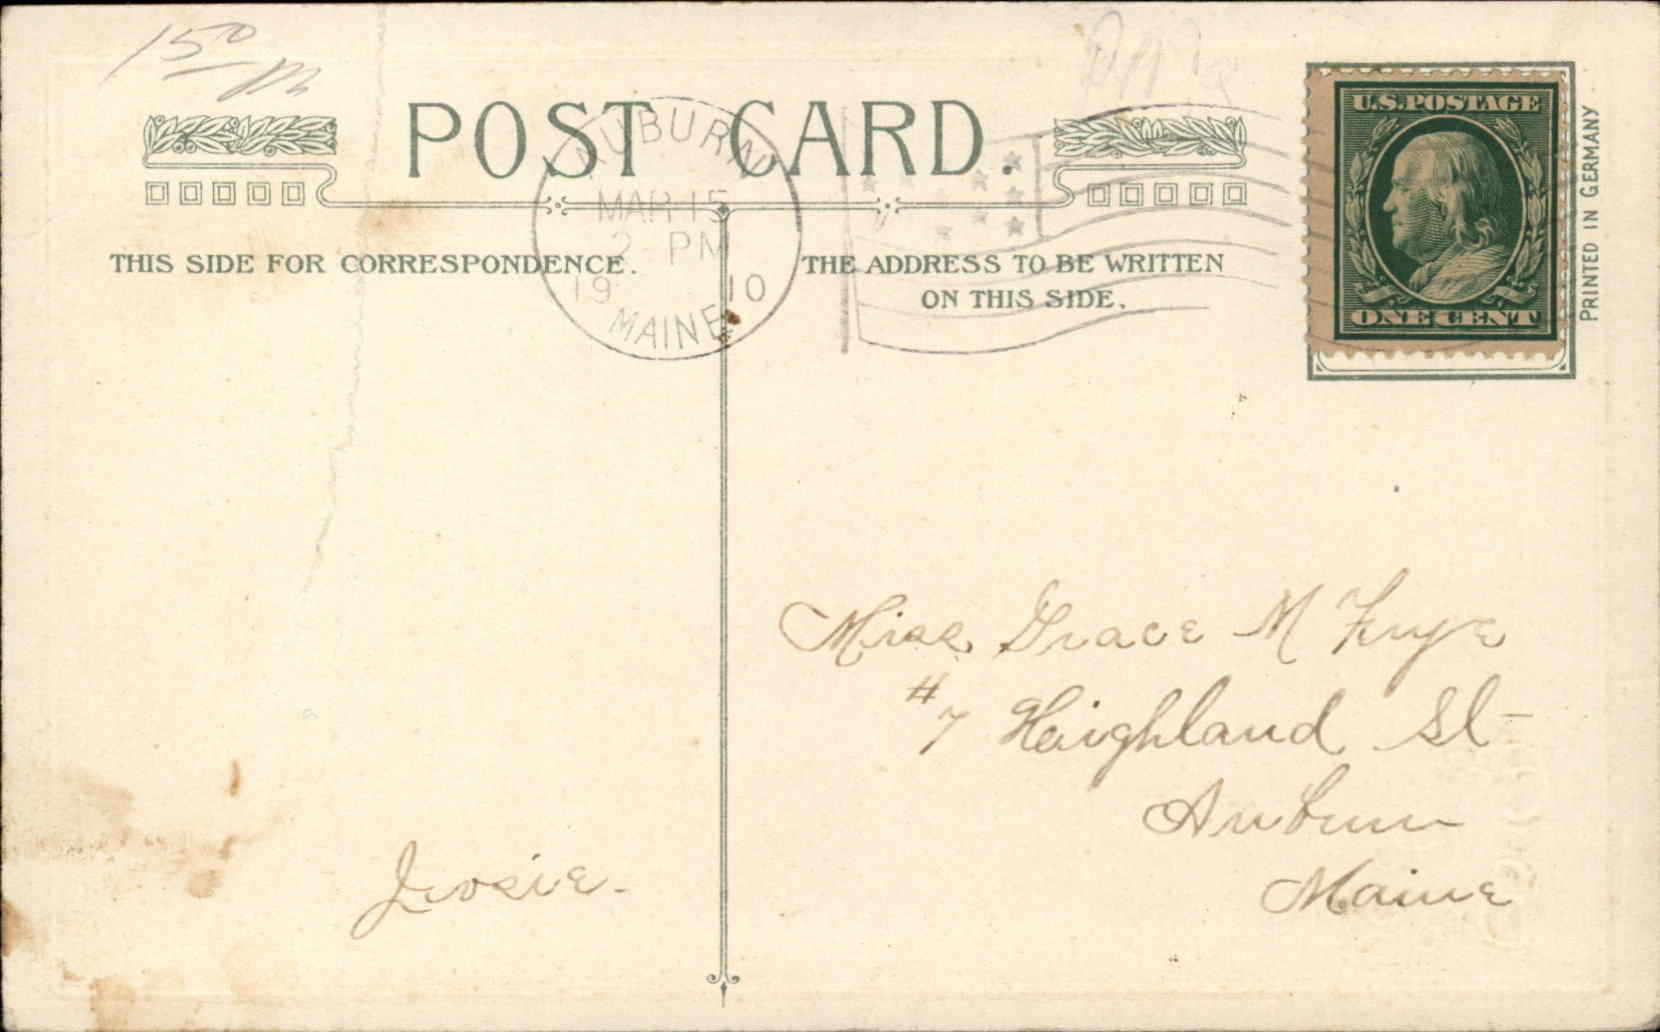 15 0/m
POST CARD.
AUBURN
MAR 15
2 PM
19 10
MAINE
U.S.POSTAGE
ONE CENT
PRINTED IN GERMANY
THIS SIDE FOR CORRESPONDENCE.
THE ADDRESS TO BE WRITTEN
ON THIS SIDE.
Miss Grace M Frye
#7 Heighland St
Auburn
Maine
Josie.